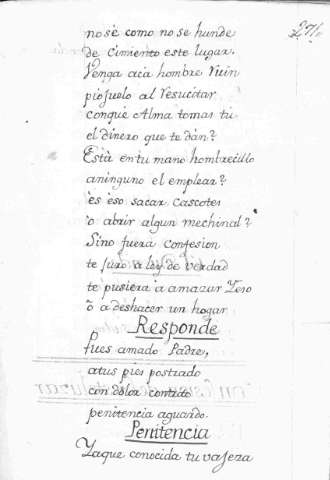 271
no sè como no se hunde
de cimiento este lugar.
Venga acia hombre Ruin
piojuelo al resucitar
conque Alma tomas tù
el dinero que te dàn?
Està en tu mano hombrecillo
aninguno el emplear?
ès eso sacar cascotes
ò abrir algun mechinal?
Sino fuera confesion
te juro à ley de verdad
te pusiera à amazar Yeso
ò à deshacer un hogar
Responde
Pues amado Padre,
atus pies postrado
con dolor contrito
penitencia aguardo.
Penitencia
Yaque conocida tu vajeza